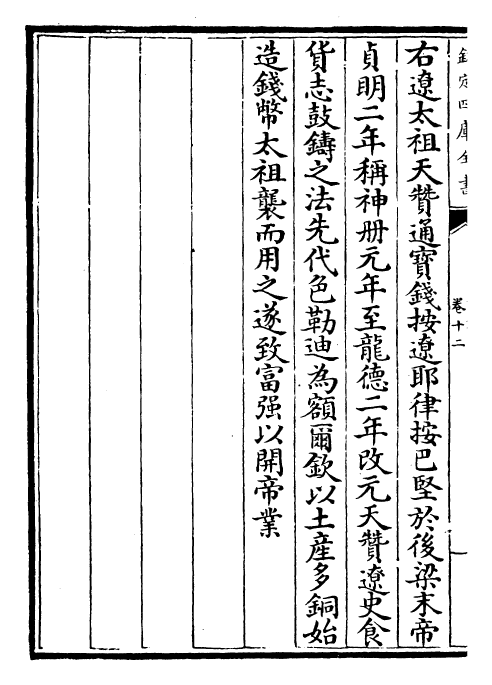 欽定四庫全書
卷十二
右遼太祖天贊通寳錢按遼耶律按巴堅於後梁末帝
貞明二年稱神册元年至龍德二年改元天贊遼史食
貨志鼓鑄之法先代色勒迪為額爾欽以土産多銅始
造錢幣太祖襲而用之遂致富强以開帝業